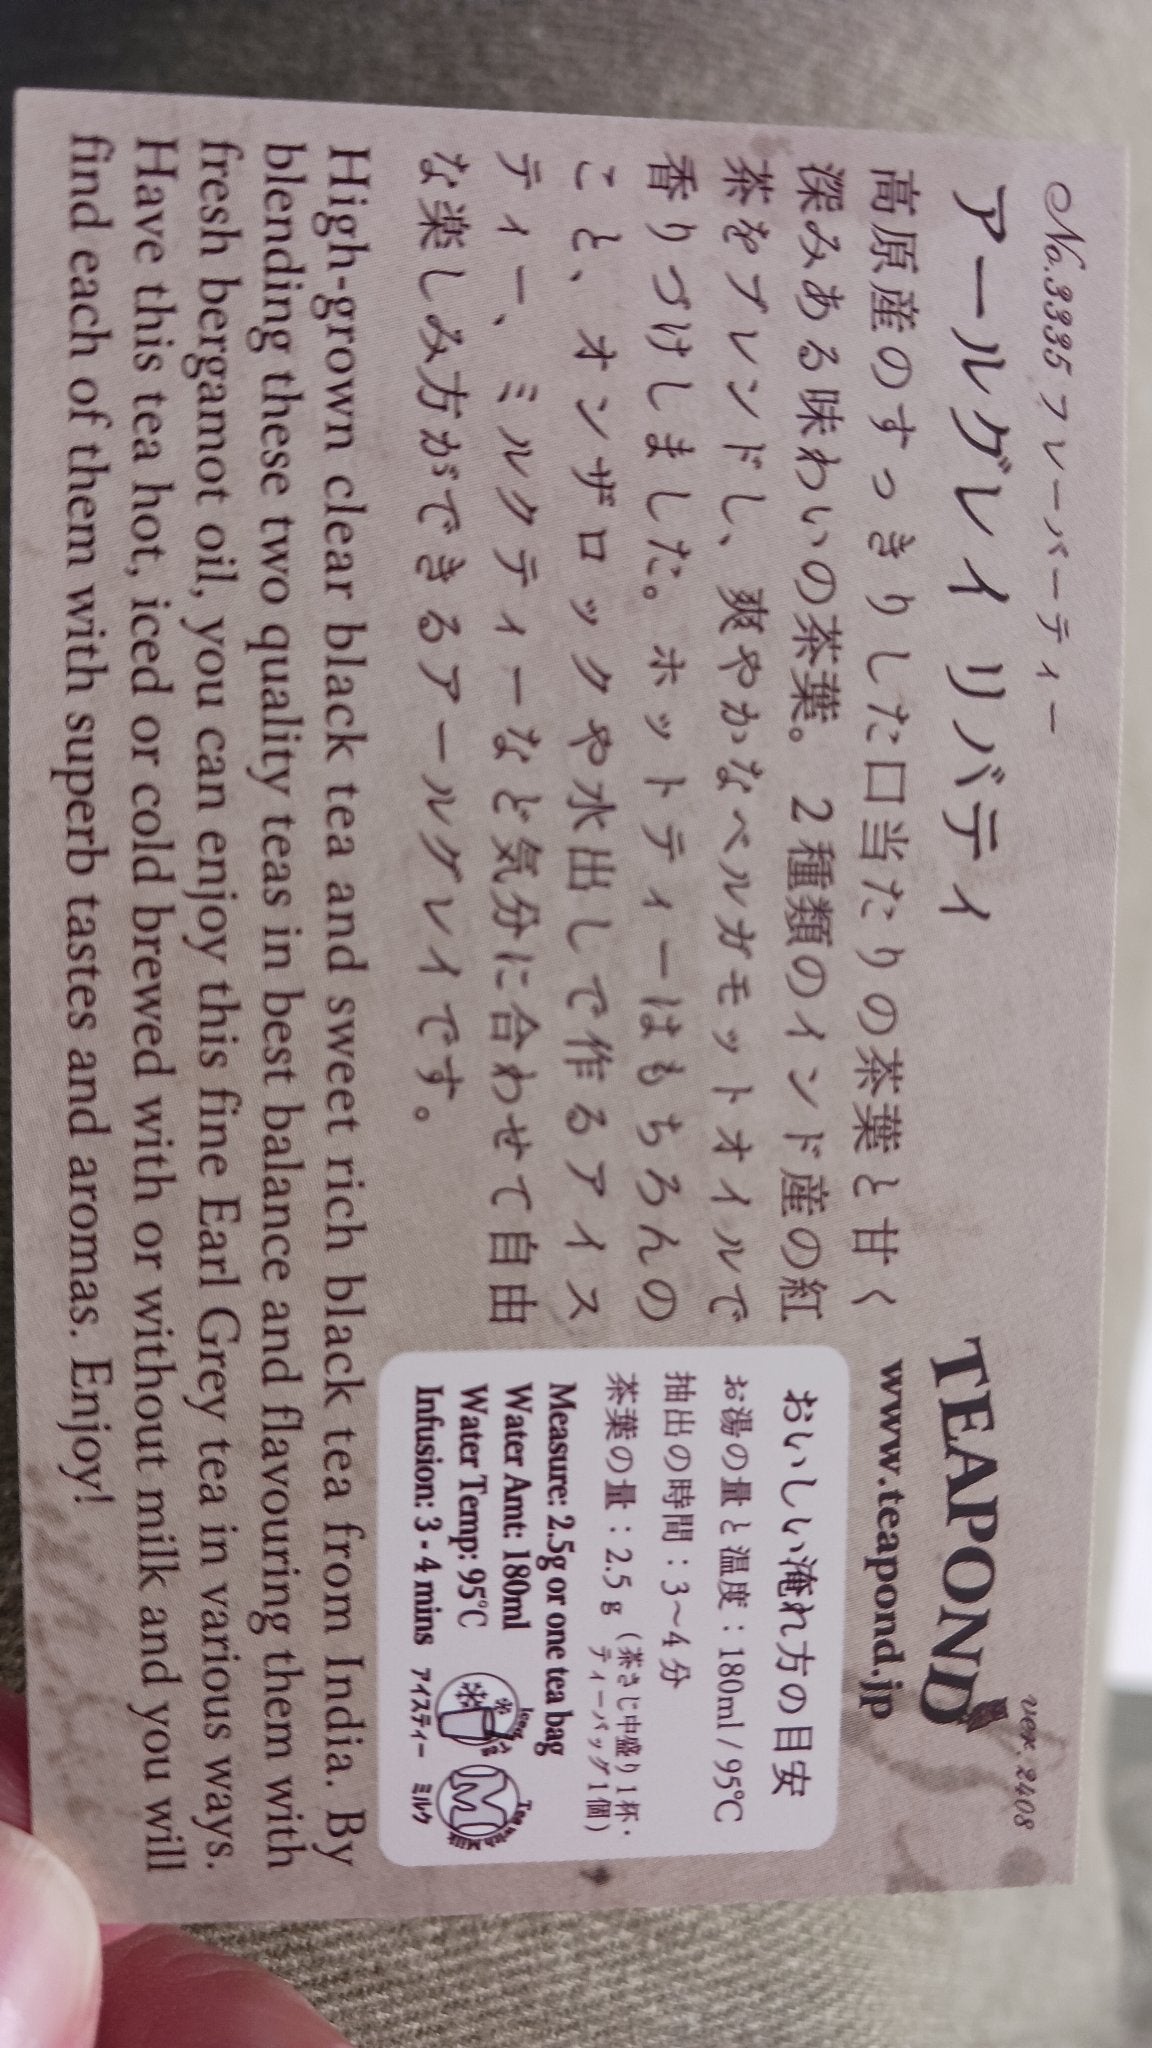 No.3335 フレーバーティー
ver.2408
アールグレイ リバティ
TEAPOND
www.teapond.jp
高原産のすっきりした口当たりの茶葉と甘く
深みある味わいの茶葉。2種類のインド産の紅
茶をブレンドし、爽やかなベルガモットオイルで
香りづけしました。ホットティーはもちろんの
こと、オンザロックや水出しで作るアイス
ティー、ミルクティーなど気分に合わせて自由
な楽しみ方ができるアールグレイです。
おいしい淹れ方の目安
お湯の量と温度：180ml / 95℃
抽出の時間：3〜4分
茶葉の量：2.5g（茶さじ中盛り1杯・
ティーバッグ1個）
Measure: 2.5g or one tea bag
Water Amt: 180ml
Water Temp: 95℃
Infusion: 3 - 4 mins
Iced Tea
アイスティー
Tea with Milk
ミルク
High-grown clear black tea and sweet rich black tea from India. By
blending these two quality teas in best balance and flavouring them with
fresh bergamot oil, you can enjoy this fine Earl Grey tea in various ways.
Have this tea hot, iced or cold brewed with or without milk and you will
find each of them with superb tastes and aromas. Enjoy!